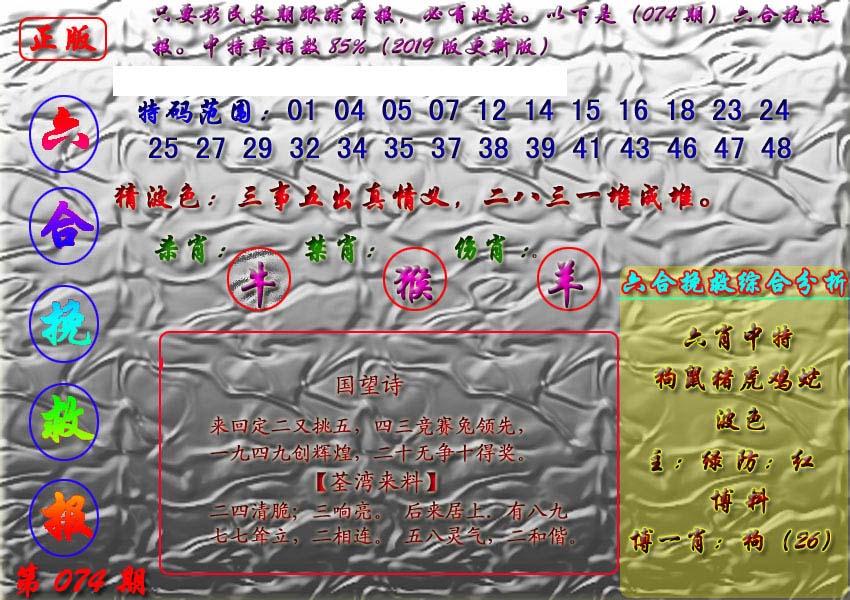 正版
只要彩民长期跟踪本报，必有收获。以下是（074期）六合挽救
报。中特率指数85%（2019版更新版）
六
合
挽
救
报
第074期
特码范围：01 04 05 07 12 14 15 16 18 23 24
25 27 29 32 34 35 37 38 39 41 43 46 47 48
猜波色：三事五出真情义，二八三一堆成堆。
杀肖： 禁肖： 伤肖：。
牛 猴 羊
国望诗
来回定二又挑五，四三竞赛兔领先，
一九四九创辉煌，二十无争十得奖。
【荃湾来料】
二四清脆；三响亮。 后来居上．有八九
七七耸立，二相连。 五八灵气，二和偕。
六合挽救综合分析
六肖中特
狗鼠猪虎鸡蛇
波色
主：绿防：红
博料
博一肖：狗（26）